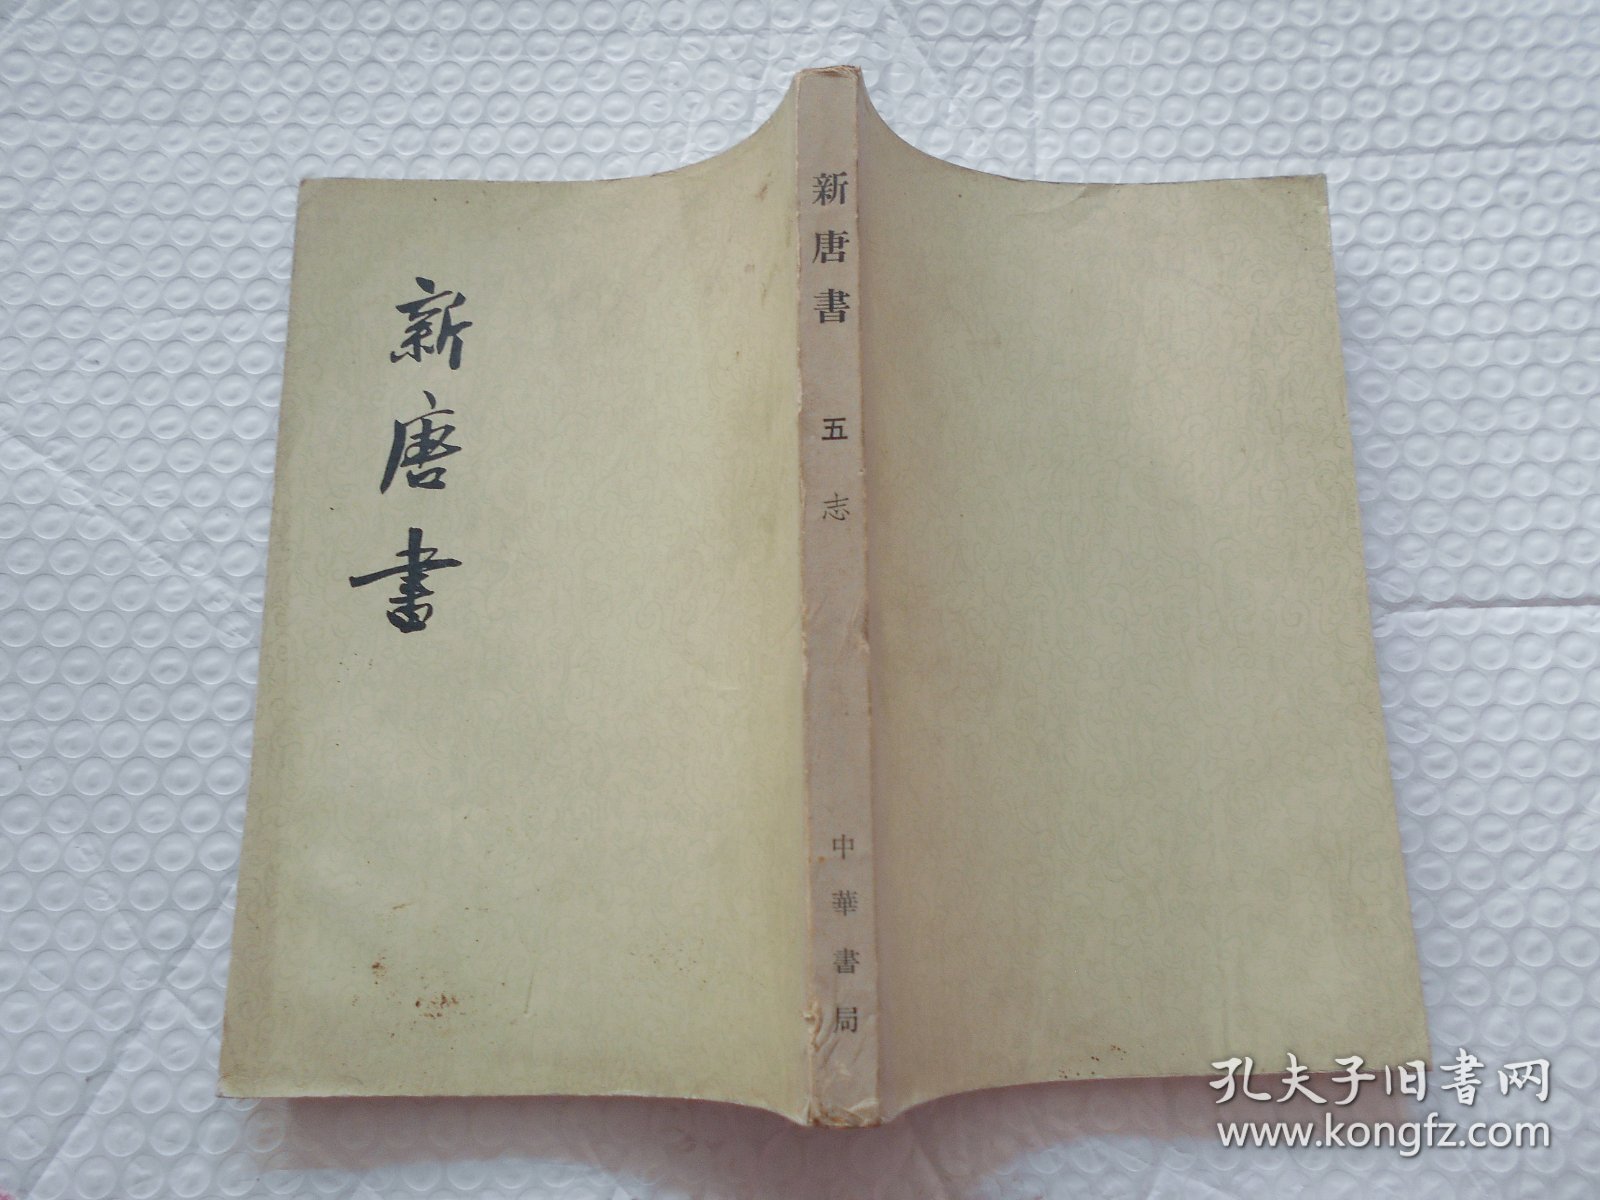 新唐書
新唐書 五 志 中華書局
孔夫子旧书网
www.kongfz.com